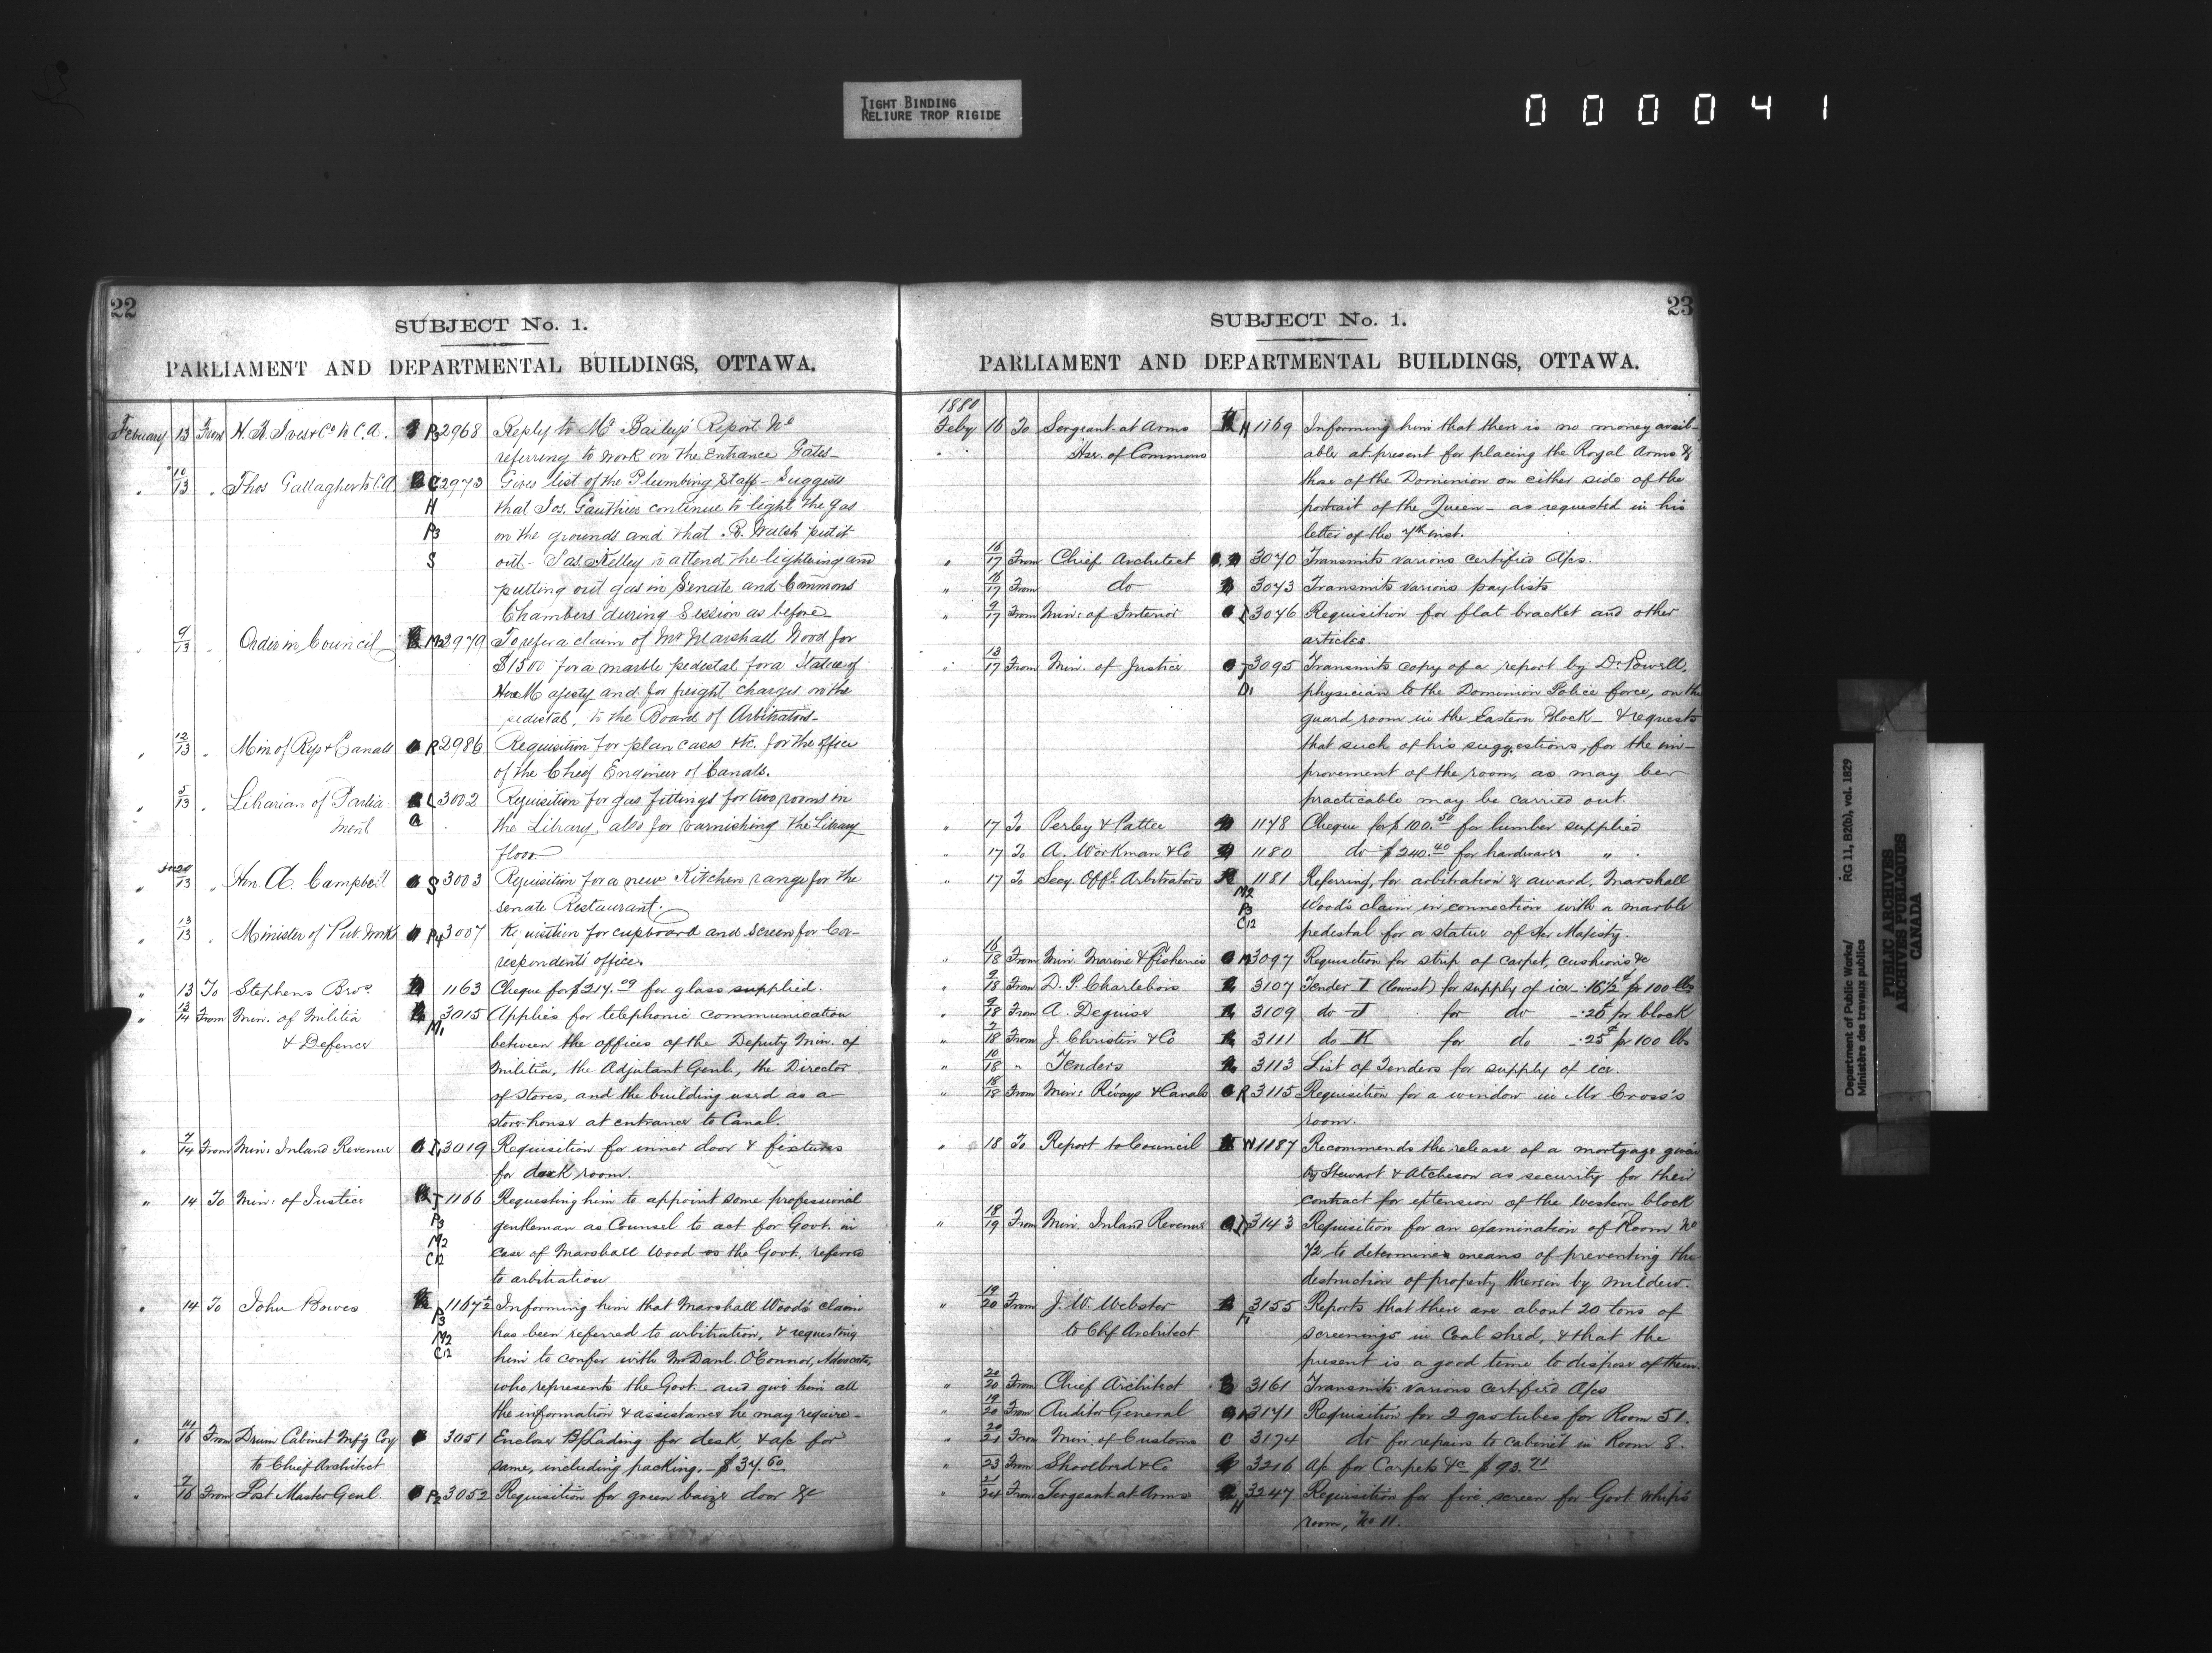 TIGHT BINDING
RELIURE TROP RIGIDE
000041
22
SUBJECT No. 1.
PARLIAMENT AND DEPARTMENTAL BUILDINGS, OTTAWA.
February 13 From H. R. Ives & Co to C.A. P3 2968 Reply to Mr Baily's Report No
referring to work on the Entrance Gates—
10/13 " Thos Gallagher to C.A. C 2973 Gives list of the Plumbing Staff— Suggests
H that Jos. Gauthier continue to light the gas
P3 on the grounds and that R. Walsh put it
S out— Jas Kelley to attend the lightning and
putting out gas in Senate and Commons
Chambers during Session as before
" 9/13 " Order in Council M2 2979 To refer a claim of Mr Marshall Wood for
$1500 for a marble pedestal for a Statue of
Her Majesty and for freight charges on the
pedestal, to the Board of Arbitrators—
" 12/13 " Min of Rys & Canals R 2986 Requisition for plan cases etc. for the office
of the Chief Engineer of Canals.
" 5/13 " Librarian of Parlia- L 3002 Requisition for gas fittings for two rooms in
ment a the Library, also for varnishing the Library
floor
" 13 " Hon. A. Campbell S 3003 Requisition for a new Kitchen range for the
senate Restaurant.
" 13/13 " Minister of Pub. Works P4 3007 Requisition for cupboard and screen for Co-
respondents office.
" 13 To Stephens Bros. 1163 Cheque for $214.09 for glass supplied.
" 13/14 From Min. of Militia 3015 Applies for telephonic communication
& Defence M1 between the offices of the Deputy Min. of
Militia, the Adjutant Genl., the Director
of Stores, and the building used as a
store-house at entrance to Canal.
" 7/14 From Min: Inland Revenue I1 3019 Requisition for inner door & fixtures
for desk room.
" 14 To Min: of Justice J 1166 Requesting him to appoint some professional
P3 gentleman as Counsel to act for Govt. in
M2 case of Marshall Wood vs the Govt. referred
C12 to arbitration
" 14 To John Bowes 1167½ Informing him that Marshall Wood's claim
P3 M2 has been referred to arbitration, & requesting
C12 him to confer with Mr Danl. O'Connor, Advocate,
who represents the Govt. and give him all
the information & assistance he may require—
" 11/16 From Drum Cabinet Mfg Coy 3051 Encloses B/Lading for desk, & a/c for
to Chief Architect same, including packing.— $34.60
" 7/16 From Post Master Genl. P2 3052 Requisition for green baize door &c
23
SUBJECT No. 1.
PARLIAMENT AND DEPARTMENTAL BUILDINGS, OTTAWA.
1880
Feby 16 To Sergeant-at-Arms H 1169 Informing him that there is no money avail-
Hse. of Commons able at present for placing the Royal Arms &
those of the Dominion on either side of the
portrait of the Queen— as requested in his
letter of the 7th inst.
" 16/17 From Chief Architect 3070 Transmits various certified A/cs.
" 16/17 From do 3043 Transmits various pay lists
" 9/17 From Min: of Interior I 3046 Requisition for flat bracket and other
articles.
" 13/17 From Min. of Justice J 3095 Transmits copy of a report by Dr Powell,
D1 physician to the Dominion Police force, on the
guard room in the Eastern Block— & requests
that such of his suggestions, for the im-
provement of the room, as may be
practicable may be carried out.
" 17 To Perley & Pattee 1178 Cheque for $100.50 for lumber supplied
" 17 To A. Workman & Co 1180 do $240.40 for hardware "
" 17 To Secy. Offl. Arbitrators 1181 Referring, for arbitration & award, Marshall
M2 P3 Wood's claim in connection with a marble
C12 pedestal for a statue of Her Majesty.
" 16/18 From Min. Marine & Fisheries M 3097 Requisition for strip of carpet, cushions &c
" 9/18 From D. P. Charlebois 3107 Tender I (lowest) for supply of ice—16½¢ pr 100 lbs
" 9/18 From A. Deguise 3109 do J for do —.26¢ pr block
" 7/18 From J. Christin & Co 3111 do K for do —.25¢ pr 100 lbs
" 10/18 " Tenders 3113 List of Tenders for supply of ice.
" 18/18 From Min: R'ways & Canals R 3115 Requisition for a window in Mr Cross's
room.
" 18 To Report to Council W 1187 Recommends the release of a mortgage given
by Stewart & Atcheson as security for their
contract for extension of the western block
" 18/19 From Min. Inland Revenue 3143 Requisition for an examination of Room No
72 to determine means of preventing the
destruction of property therein by mildew.
" 19/20 From J. W. Webster 3155 Reports that there are about 20 tons of
to Chf Architect screenings in Coal shed, & that the
present is a good time to dispose of them.
" 20/20 From Chief Architect 3161 Transmits various certified A/cs
" 19/20 From Auditor General 3171 Requisition for 2 gas tubes for Room 51.
" 20/21 From Min. of Customs C 3174 do for repairs to cabinet in Room 8.
" 23 From Shoolbred & Co 3216 A/c for Carpets &c $93.71
" 21/24 From Sergeant at Arms 3247 Requisition for fire screen for Govt Whip's
H room, No 11.
Department of Public Works/ RG 11, B2(b), vol. 1829
Ministère des travaux publics
PUBLIC ARCHIVES
ARCHIVES PUBLIQUES
CANADA